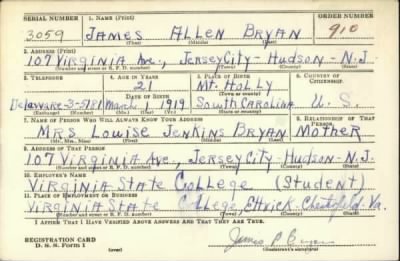 SERIAL NUMBER 1. NAME (Print) ORDER NUMBER
3059 JAMES ALLEN BRYAN 910
(First) (Middle) (Last)
2. ADDRESS (Print)
107 VIRGINIA AVE., JERSEY CITY - HUDSON - N.J.
(Number and street or R. F. D. number) (Town) (County) (State)
3. TELEPHONE 4. AGE IN YEARS 5. PLACE OF BIRTH 6. COUNTRY OF CITIZENSHIP
21 Mt. HOLLY
DATE OF BIRTH (Town or county)
Delaware-3-5781 March 1 1919 SOUTH CAROLINA U. S.
(Exchange) (Number) (Mo.) (Day) (Yr.) (State or country)
7. NAME OF PERSON WHO WILL ALWAYS KNOW YOUR ADDRESS 8. RELATIONSHIP OF THAT PERSON
MRS LOUISE JENKINS BRYAN MOTHER
(Mr., Mrs., Miss) (First) (Middle) (Last)
9. ADDRESS OF THAT PERSON
107 VIRGINIA AVE., JERSEY CITY - HUDSON - N.J.
(Number and street or R. F. D. number) (Town) (County) (State)
10. EMPLOYER'S NAME
VIRGINIA STATE COLLEGE (STUDENT)
11. PLACE OF EMPLOYMENT OR BUSINESS
VIRGINIA STATE COLLEGE, Ettrick - Chesterfield Va.
(Number and street or R. F. D. number) (Town) (County) (State)
I AFFIRM THAT I HAVE VERIFIED ABOVE ANSWERS AND THAT THEY ARE TRUE.
REGISTRATION CARD
D. S. S. FORM 1 (over) (Registrant's signature)